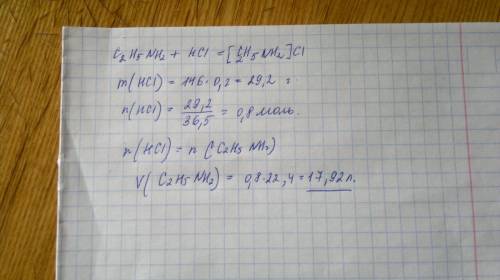 C₂H₅NH₂ + HCl = [C₂H₅NH₂]Cl
m(HCl) = 146·0,2 = 29,2 г
n(HCl) = 29,2/36,5 = 0,8 моль.
n(HCl) = n(C₂H₅NH₂)
V(C₂H₅NH₂) = 0,8·22,4 = 17,92 л.